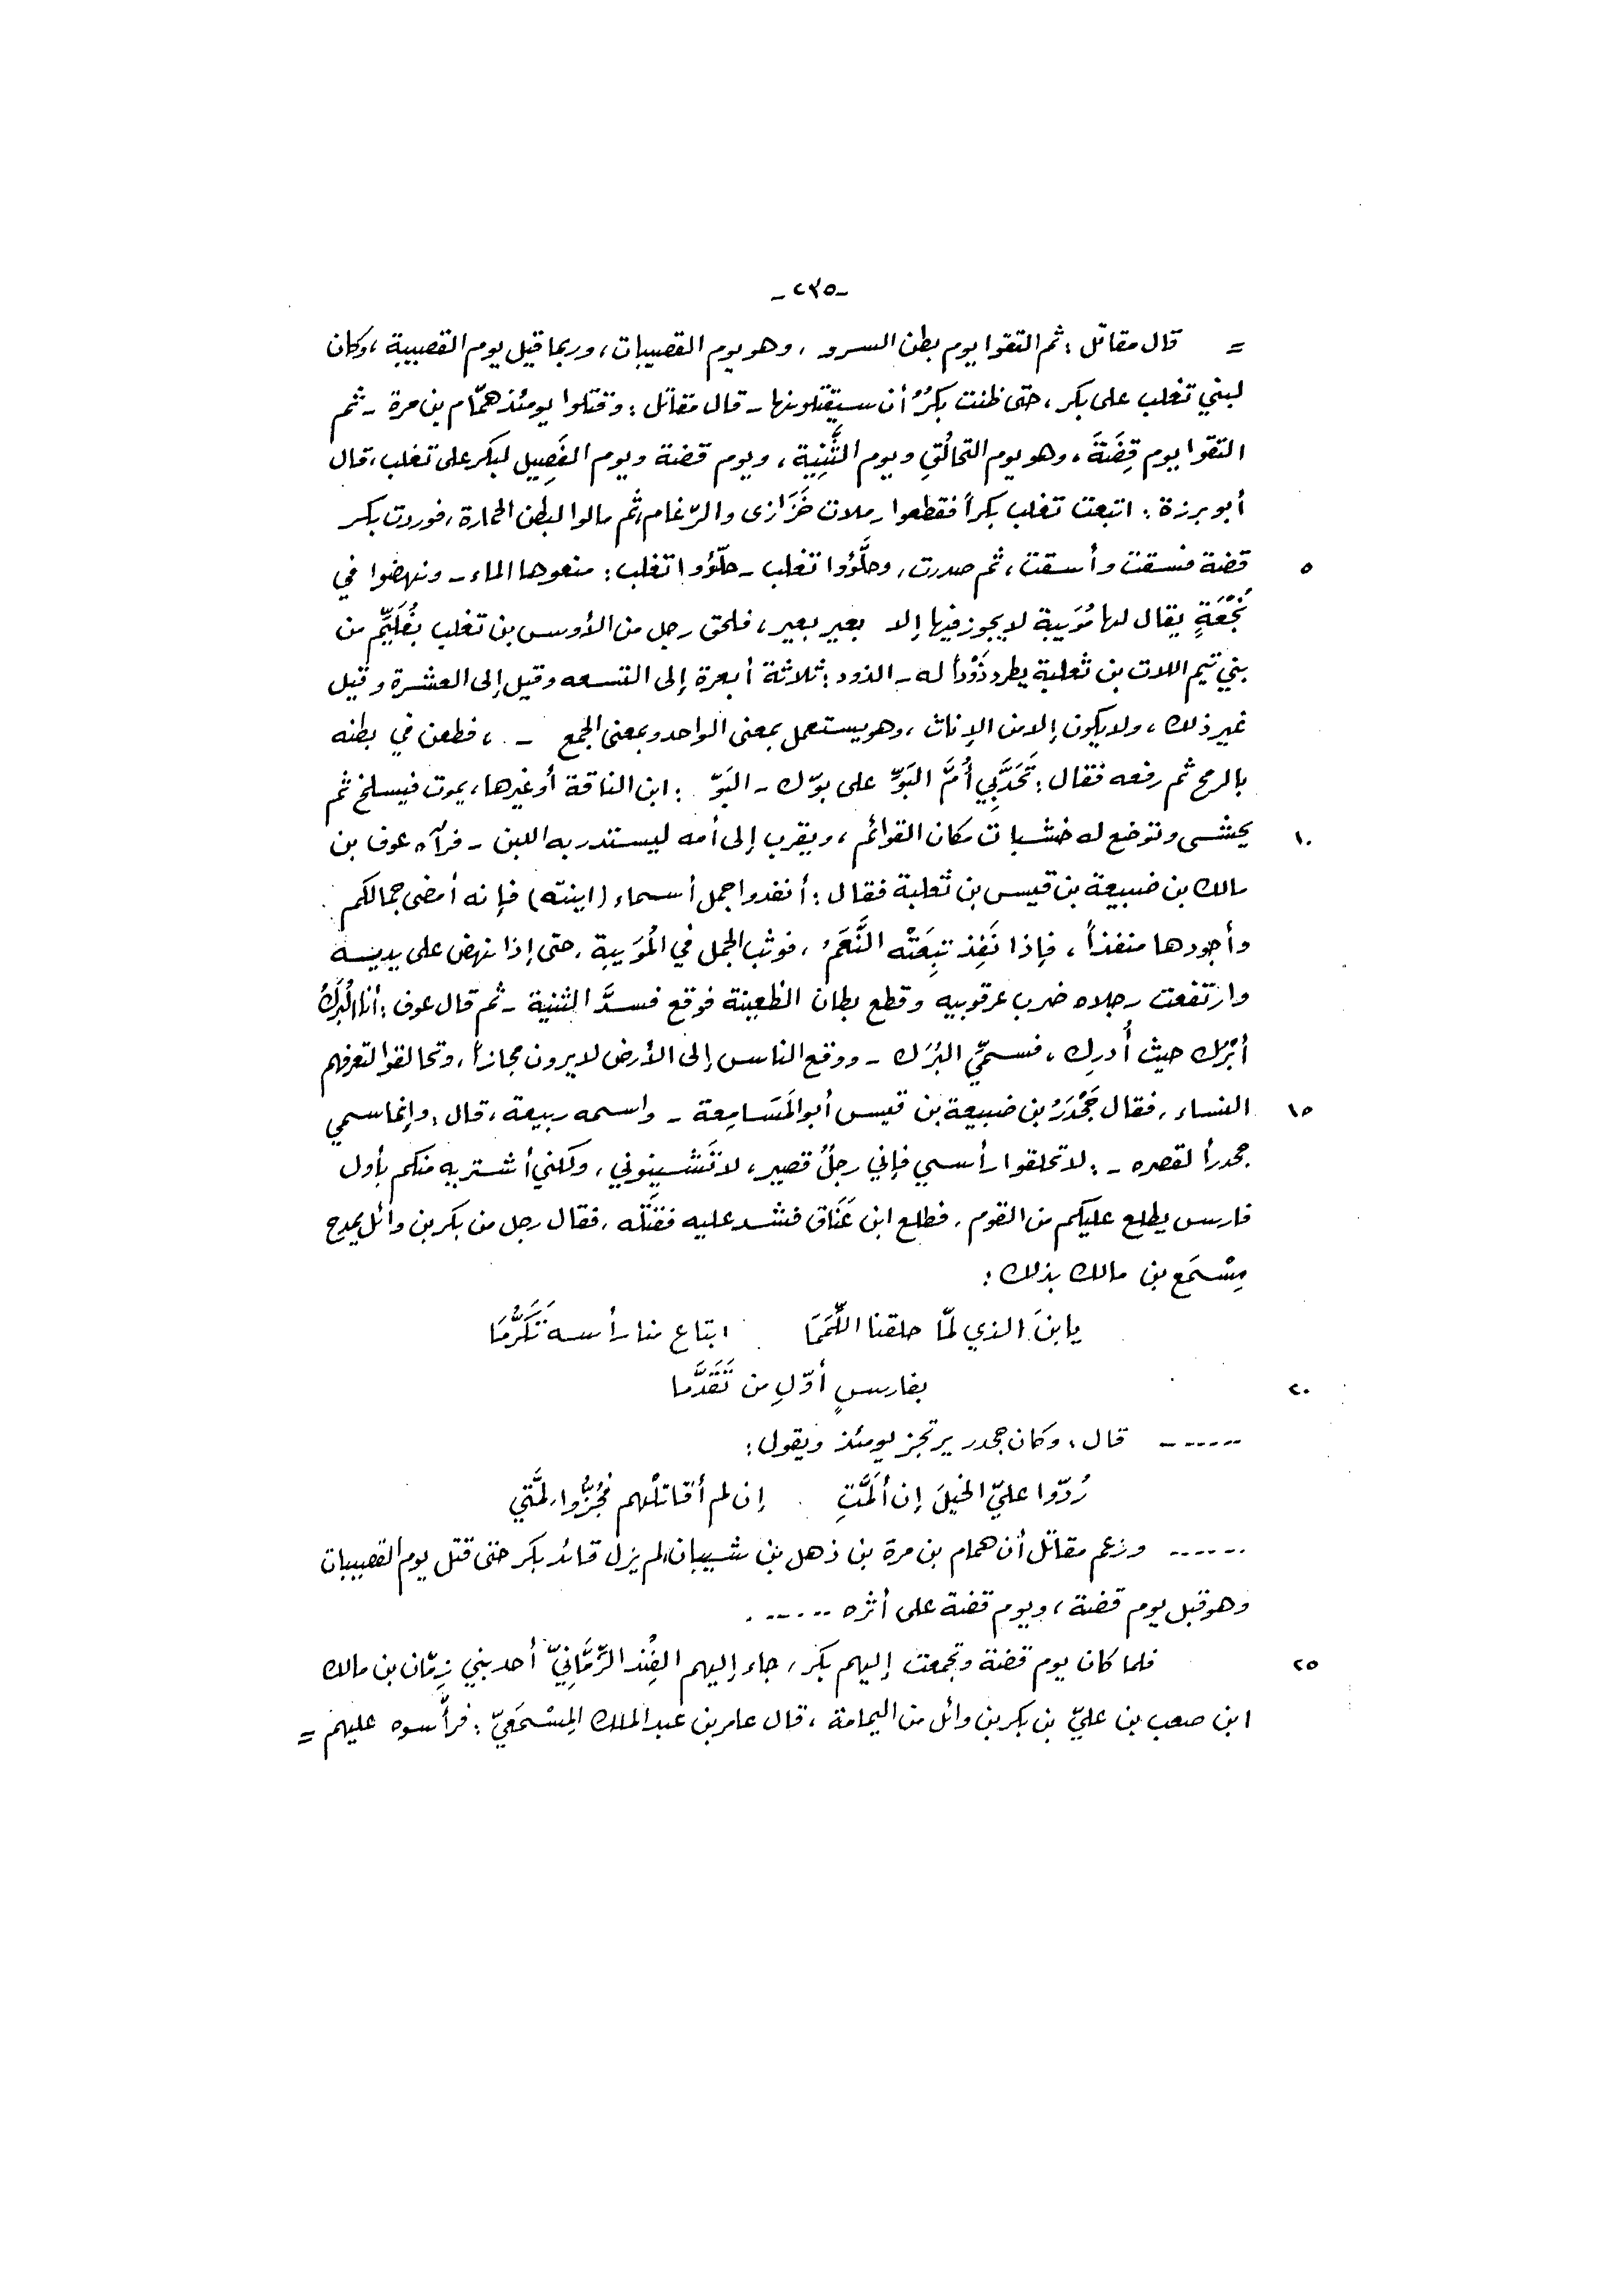 -٢٣٥-
= قال مقاتل : ثم التقوا يوم بطن السرو ، وهو يوم القصيبات ، وربما قيل يوم القصيبة ، وكان
لبني تغلب على بكر ، حتى ظنت بكرٌ أن سيقتلونها - قال مقاتل : وقتلوا يومئذ همّام بن مرة - ثم
التقوا يوم قِضَةَ ، وهو يوم التحالُقِ ويوم الثَّنِيّة ، ويوم قضة ويوم الفَصِيل لبكر على تغلب ، قال
أبو برزة : اتبعت تغلب بكراً فقطعوا رملات خَزَازى والرّغام ثم مالوا لبطن الحمارة ، فوردت بكر
٥ قضة فسقت وأسقت ، ثم صدرت ، وحلَّؤوا تغلب - حلّؤوا تغلب : منعوها الماء - ونهضوا في
نُجْعَةٍ يقال لها مُوَيبة لا يجوز فيها إلا بعير بعير ، فلحق رجل من الأوس بن تغلب بغُلَيِّم من
بني تيم اللات بن ثعلبة يطرد ذَوْداً له - الذود : ثلاثة أبعرة إلى التسعه وقيل إلى العشرة وقيل
غير ذلك ، ولا يكون إلا من الإناث ، وهو يستعمل بمعنى الواحد وبمعنى الجمع - ، فطعن في بطنه
بالرمح ثم رفعه فقال : تَحَدَّبي أُمَّ البَوِّ على بوّك - البَوّ : ابن الناقة أو غيرها ، يموت فيسلخ ثم
١٠ يحشى وتوضع له خشبات مكان القوائم ، ويقرب إلى أمه ليستدر به اللبن - فرآه عوف بن
مالك بن ضبيعة بن قيس بن ثعلبة فقال : أنفدوا جمل أسماء (ابنته) فإنه أمضى جمالكم
وأجودها منفذاً ، فإذا نَفِذ تبِعَتْه النَّعَمُ ، فوثب الجمل في المُوَيبةِ ، حتى إذا نهض على يديه
وارتفعت رجلاه ضرب عرقوبيه وقطع بطان الظعينة فوقع فسدَّ الثنية - ثم قال عوف : أنا البُرَكُ
أبْرُك حيث أُدرِك ، فسمّي البُرَك - ووقع الناس إلى الأرض لا يرون مجازاً ، وتحالقوا لتعرفهم
١٥ النساء ، فقال جَحْدَرُ بن ضبيعة بن قيس أبو المَسَامِعة - واسمه ربيعة ، قال : وإنما سمي
جحدراً لقصره - : لا تحلقوا رأسي فإني رجلٌ قصير ، لا تَشينوني ، ولكني أشتريه منكم بأول
فارس يطلع عليكم من القوم ، فطلع ابن عَنَاق فشد عليه فقتَله ، فقال رجل من بكر بن وائل يمدح
مِسْمَع بن مالك بذلك :
يا بنَ الذي لمّا حلقنا اللِّمَمَا ابتاع منا رأسه تَكَرُّمَا
٢٠ بفارسٍ أوّلِ من تَقَدَّما
...... قال : وكان جحدر يرتجز يومئذ ويقول :
رُدّوا عليّ الخيلَ إن ألَمَّتِ إن لم أقاتلْهم فجُزُّوا لمَّتي
...... وزعم مقاتل أن همام بن مرة بن ذهل بن شيبان لم يزل قائد بكر حتى قتل يوم القصيبات
وهو قبل يوم قضة ، ويوم قضة على أثره ......
٢٥ فلما كان يوم قضة وتجمعت إليهم بكر ، جاء إليهم الفِند الزِّمَّانيّ أحد بني زِمّان بن مالك
ابن صعب بن عليّ بن بكر بن وائل من اليمامة ، قال عامر بن عبد الملك المِسْمَعيّ : فرأّسوه عليهم =